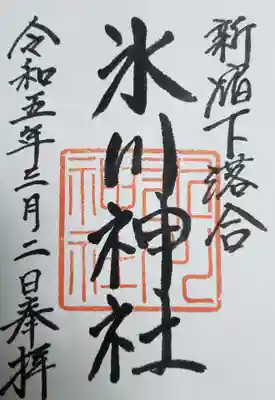 新宿下落合
氷川神社
令和五年二月二日奉拝